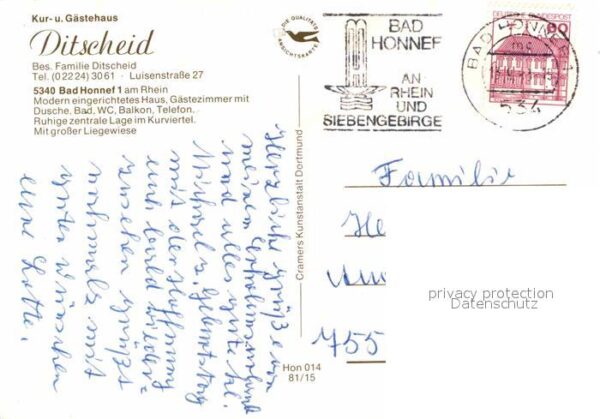 Kur- u. Gästehaus
Ditscheid
Bes. Familie Ditscheid
Tel. (02224) 3061 · Luisenstraße 27
5340 Bad Honnef 1 am Rhein
Modern eingerichtetes Haus, Gästezimmer mit
Dusche, Bad, WC, Balkon, Telefon.
Ruhige zentrale Lage im Kurviertel.
Mit großer Liegewiese
DIE QUALITÄTS
ANSICHTSKARTE
BAD
HONNEF
AN
RHEIN
UND
SIEBENGEBIRGE
DEUTSCHE BUNDESPOST
60
BAD HONNEF 1
534
Cramers Kunstanstalt Dortmund
Hon 014
81/15
Familie
He
755
privacy protection
Datenschutz
Herzliche Grüße von
meinem
und alles Gute zu
mit der Hoffnung
euch bald wieder
zu sehen grüßt
nochmals mit
guten Wünschen
eure Lotte.